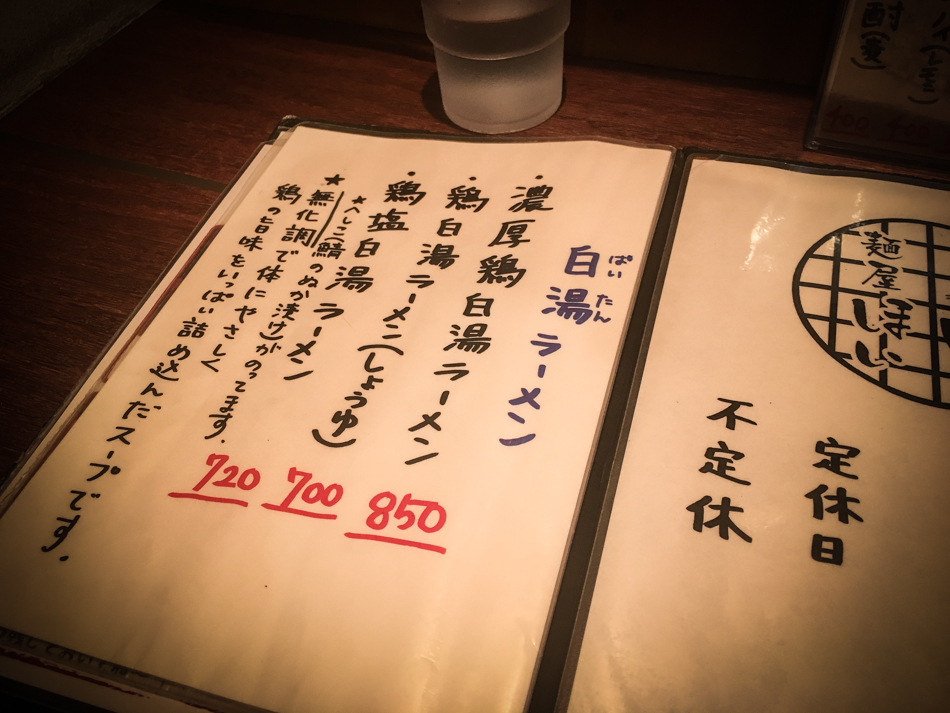 白湯ラーメン
ぱいたん
・濃厚鶏白湯ラーメン 850
・鶏白湯ラーメン(しょうゆ) 700
・鶏塩白湯ラーメン 720
★へしこ(鯖のぬか漬け)がのってます。
★無化調で体にやさしく
鶏の旨味をいっぱい詰め込んだスープです。
麺屋
定休日
不定休